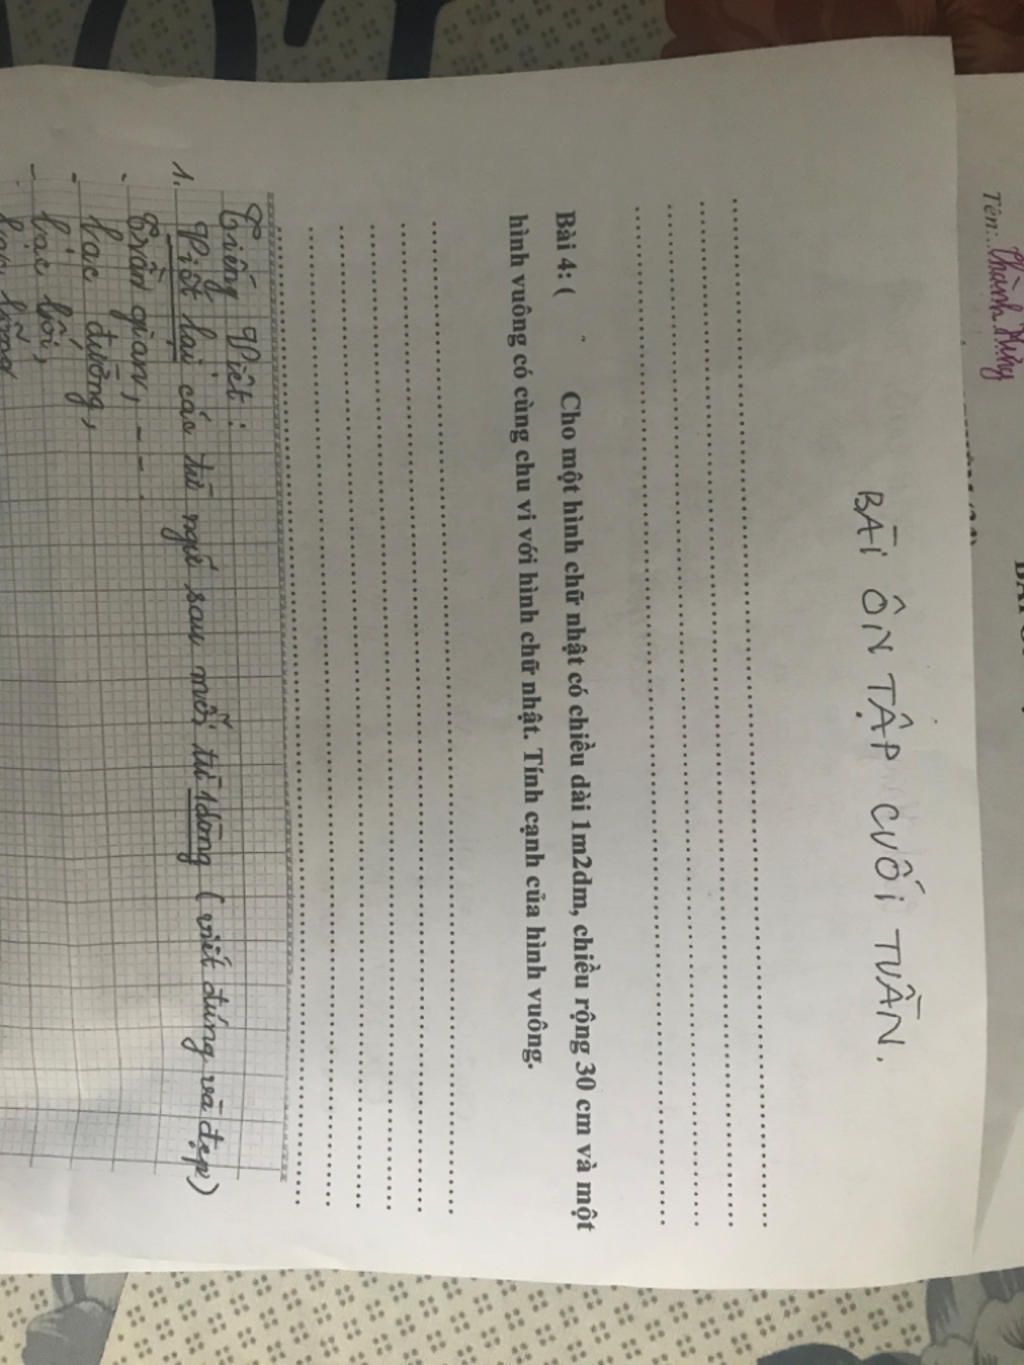 Tên...Thành Hưng
BÀI ÔN TẬP CUỐI TUẦN.
Bài 4: ( Cho một hình chữ nhật có chiều dài 1m2dm, chiều rộng 30 cm và một
hình vuông có cùng chu vi với hình chữ nhật. Tính cạnh của hình vuông.
Tiếng Việt:
1. Viết lại các từ ngữ sau mỗi từ 1 dòng (viết đúng và đẹp)
- trần gian, - -
- lạc đường,
- lỗi,